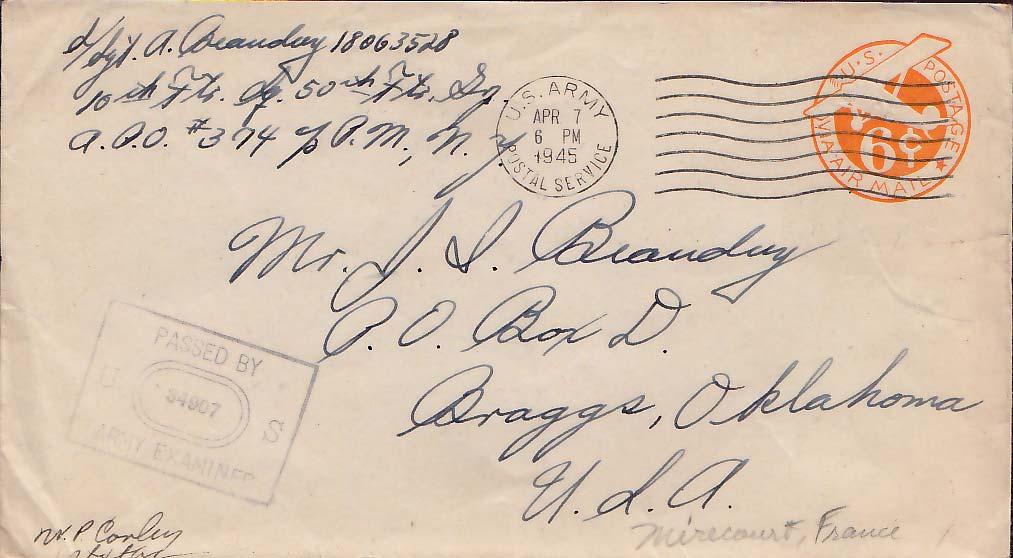 S/Sgt. A. Beanduy 18063528
10th Ftr. Sq. 50th Ftr. Gp
A.P.O. #374 % P.M., N.Y.
U.S. ARMY
APR 7
6 PM
1945
POSTAL SERVICE
U.S. POSTAGE
6¢
VIA AIR MAIL
Mr. J. S. Beanduy
P.O. Box D.
Braggs, Oklahoma
U.S.A.
PASSED BY
U 34907 S
ARMY EXAMINER
Wm. P. Conley
Mirecourt, France